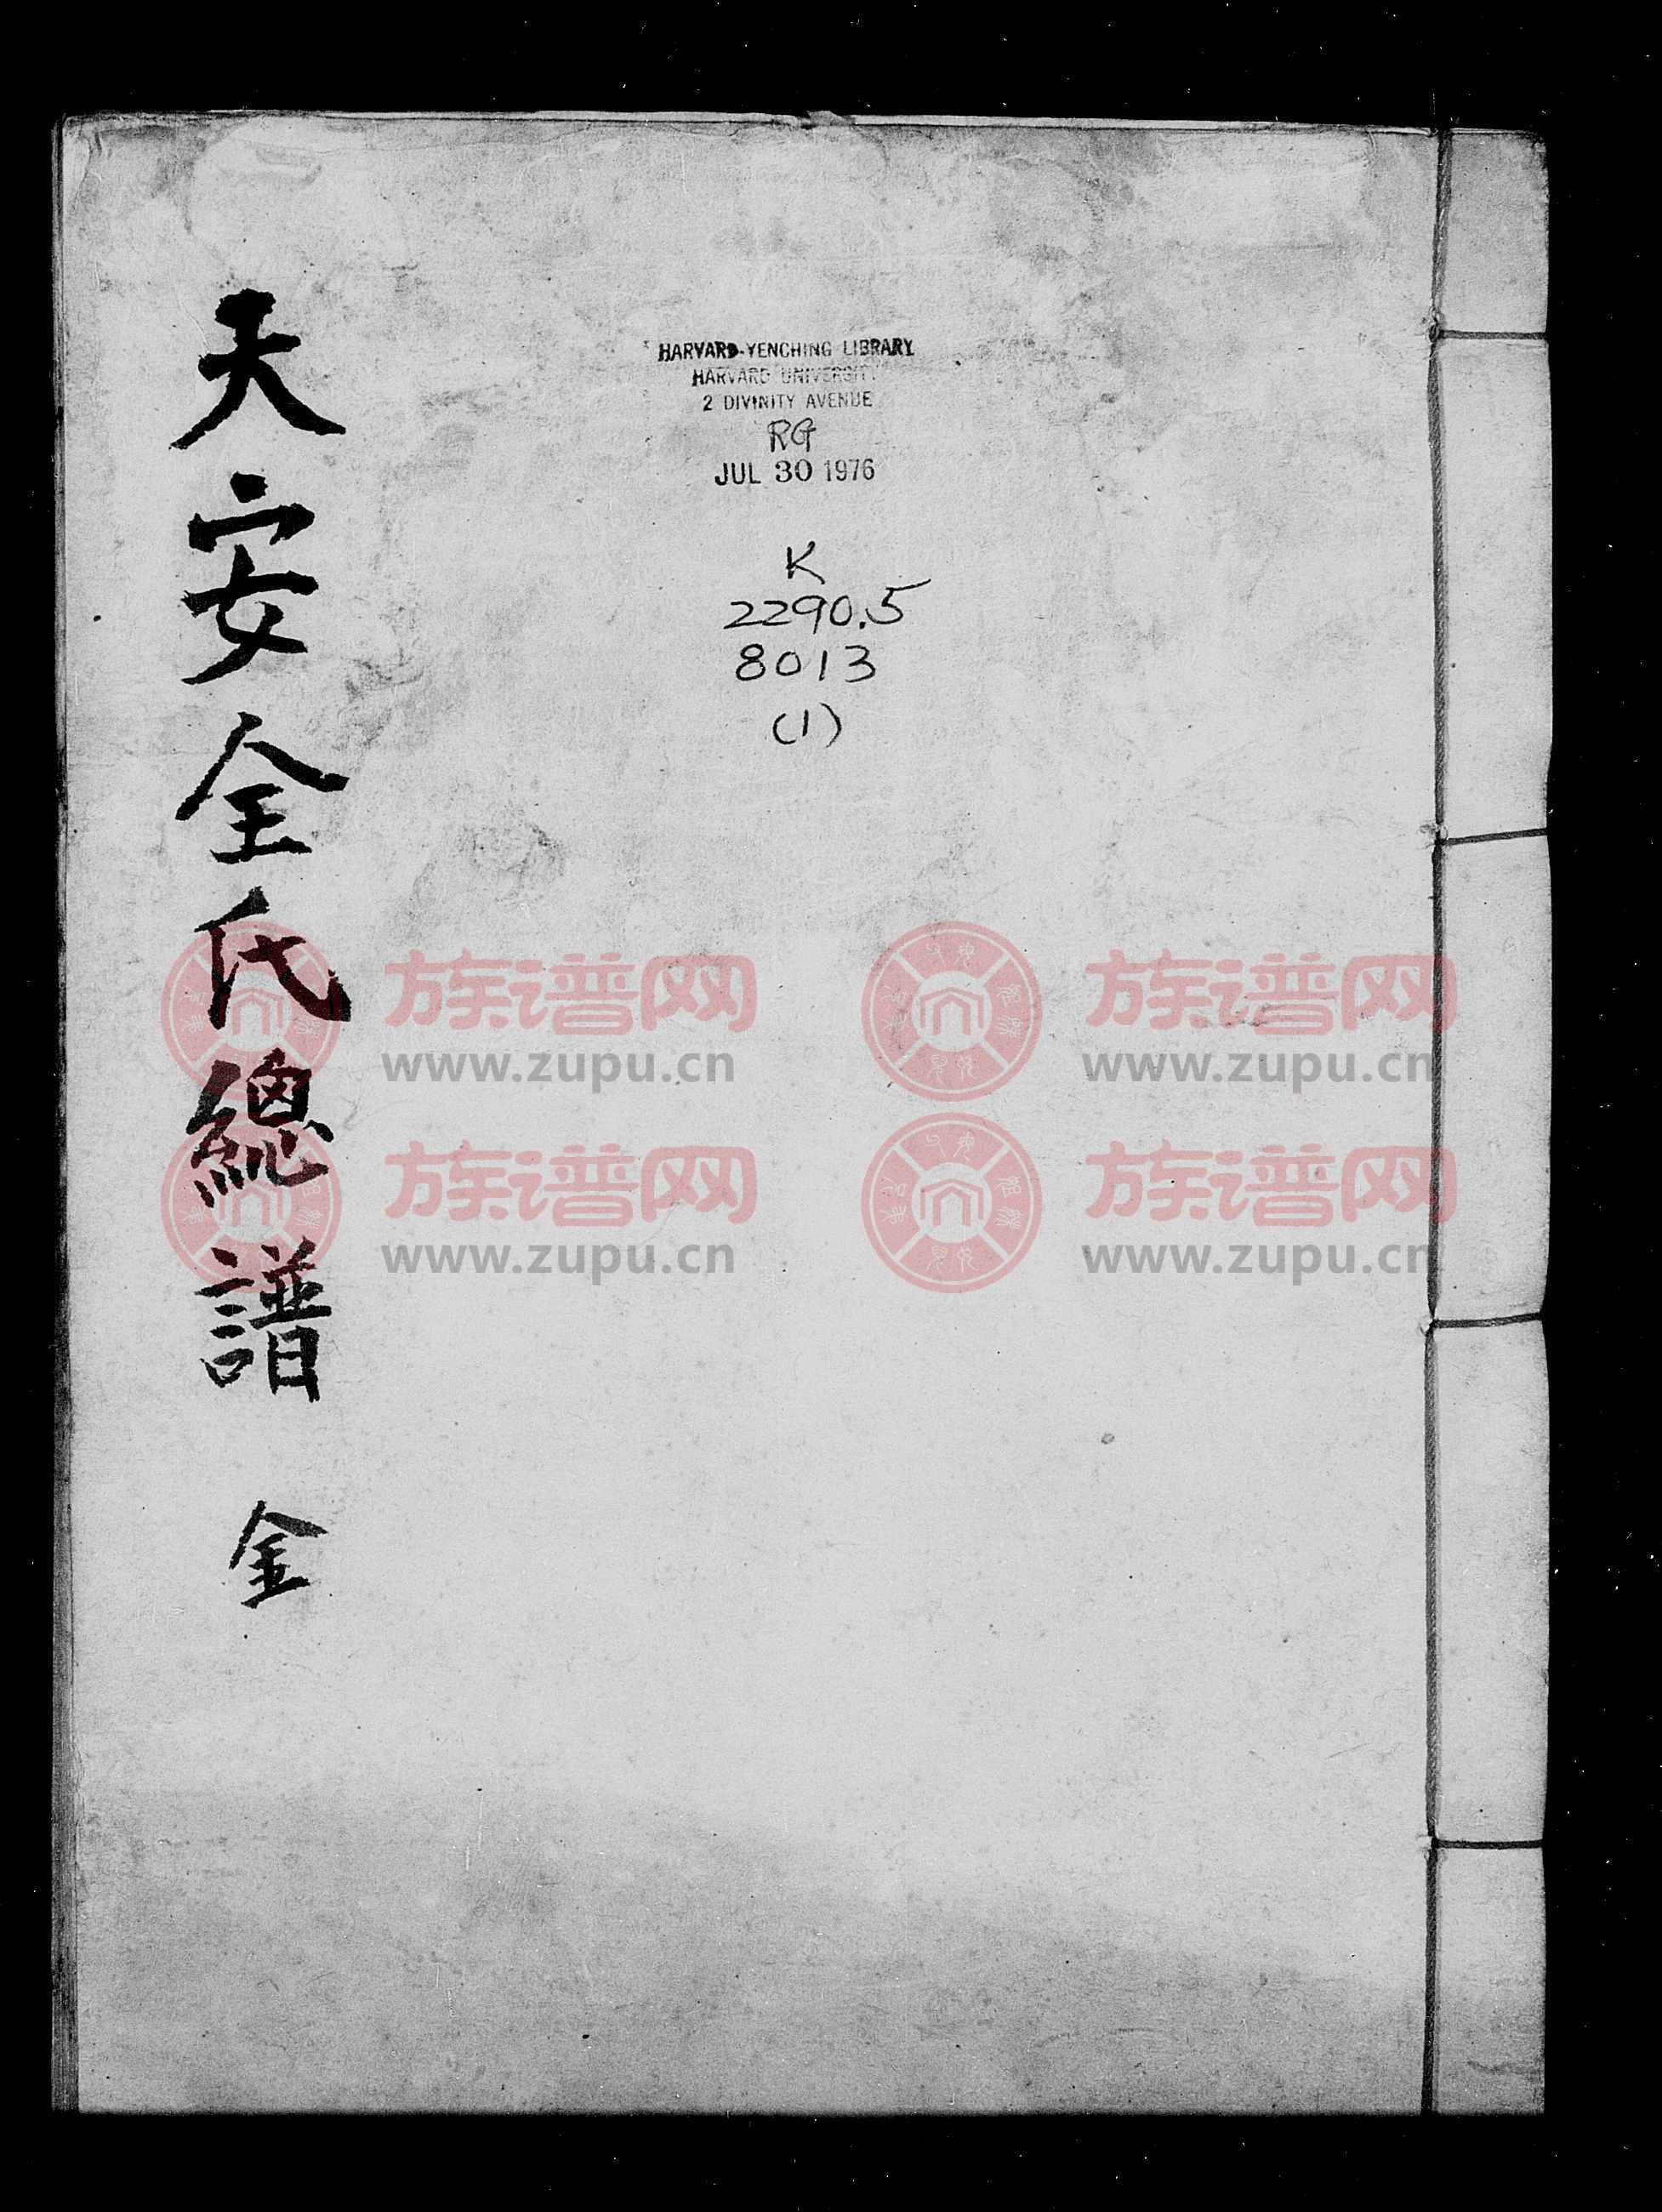 天安全氏總譜
金
HARVARD-YENCHING LIBRARY
HARVARD UNIVERSITY
2 DIVINITY AVENUE
RG
JUL 30 1976
K
2290.5
8013
(1)
族谱网
www.zupu.cn
族谱网
www.zupu.cn
族谱网
www.zupu.cn
族谱网
www.zupu.cn